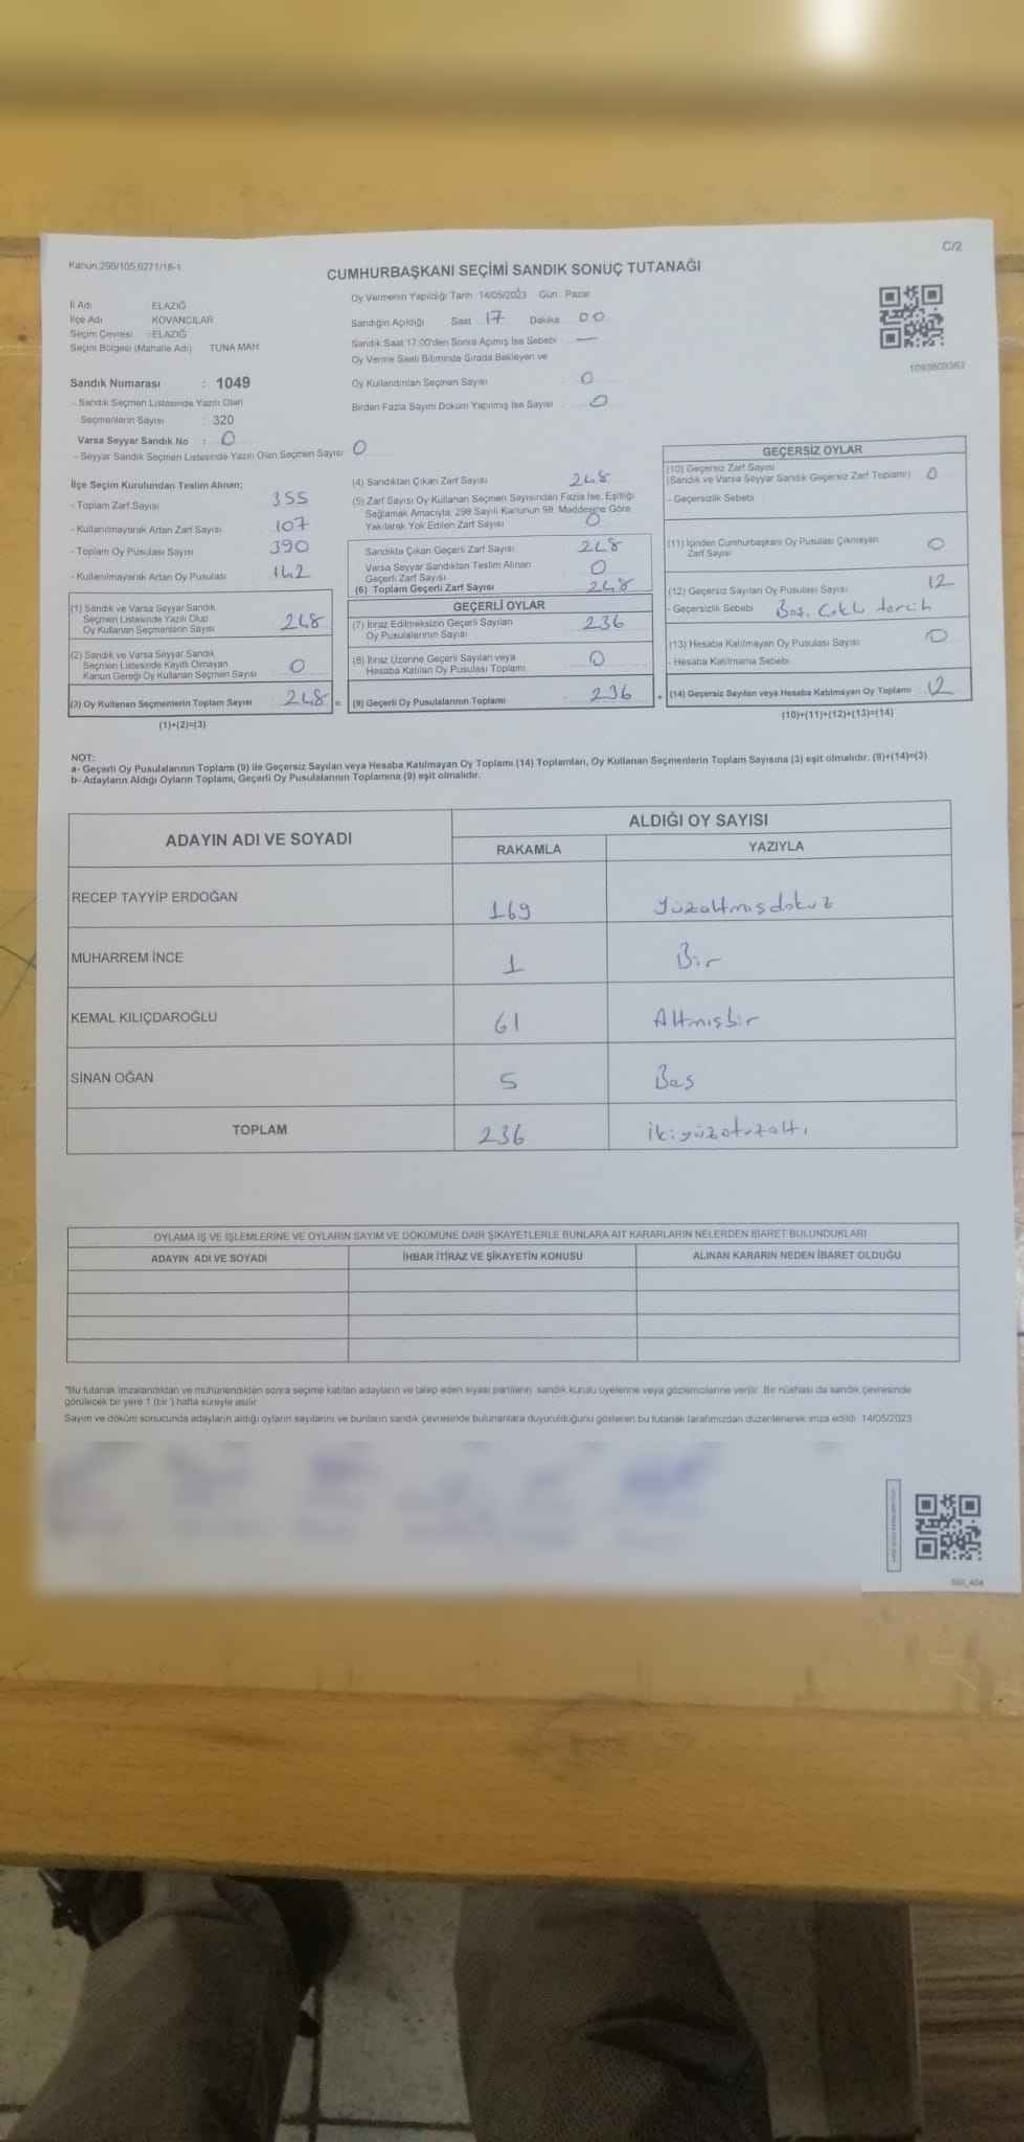 Kanun:298/105,6271/18-1
C/2
CUMHURBAŞKANI SEÇİMİ SANDIK SONUÇ TUTANAĞI
İl Adı ELAZIĞ
İlçe Adı KOVANCILAR
Seçim Çevresi : ELAZIĞ
Seçim Bölgesi (Mahalle Adı) TUNA MAH
Oy Vermenin Yapıldığı Tarih 14/05/2023 Gün Pazar
Sandığın Açıldığı Saat 17 Dakika 00
Sandık Saat 17:00'den Sonra Açılmış İse Sebebi —
Oy Verme Saati Bitiminde Sırada Bekleyen ve
Oy Kullandırılan Seçmen Sayısı 0
Birden Fazla Sayım Döküm Yapılmış İse Sayısı 0
Sandık Numarası : 1049
- Sandık Seçmen Listesinde Yazılı Olan
Seçmenlerin Sayısı : 320
Varsa Seyyar Sandık No : 0
- Seyyar Sandık Seçmen Listesinde Yazılı Olan Seçmen Sayısı 0
İlçe Seçim Kurulundan Teslim Alınan;
- Toplam Zarf Sayısı 355
- Kullanılmayarak Artan Zarf Sayısı 107
- Toplam Oy Pusulası Sayısı 390
- Kullanılmayarak Artan Oy Pusulası 142
(1) Sandık ve Varsa Seyyar Sandık
Seçmen Listesinde Yazılı Olup
Oy Kullanan Seçmenlerin Sayısı 248
(2) Sandık ve Varsa Seyyar Sandık
Seçmen Listesinde Kayıtlı Olmayan
Kanun Gereği Oy Kullanan Seçmen Sayısı 0
(3) Oy Kullanan Seçmenlerin Toplam Sayısı 248 =
(1)+(2)=(3)
(4) Sandıktan Çıkan Zarf Sayısı 248
(5) Zarf Sayısı Oy Kullanan Seçmen Sayısından Fazla İse, Eşitliği
Sağlamak Amacıyla, 298 Sayılı Kanunun 98. Maddesine Göre
Yakılarak Yok Edilen Zarf Sayısı 0
Sandıkta Çıkan Geçerli Zarf Sayısı 248
Varsa Seyyar Sandıktan Teslim Alınan
Geçerli Zarf Sayısı 0
(6) Toplam Geçerli Zarf Sayısı 248
GEÇERLİ OYLAR
(7) İtiraz Edilmeksizin Geçerli Sayılan
Oy Pusulalarının Sayısı 236
(8) İtiraz Üzerine Geçerli Sayılan veya
Hesaba Katılan Oy Pusulası Toplamı 0
(9) Geçerli Oy Pusulalarının Toplamı 236 +
GEÇERSİZ OYLAR
(10) Geçersiz Zarf Sayısı
(Sandık ve Varsa Seyyar Sandık Geçersiz Zarf Toplamı) 0
- Geçersizlik Sebebi
(11) İçinden Cumhurbaşkanı Oy Pusulası Çıkmayan
Zarf Sayısı 0
(12) Geçersiz Sayılan Oy Pusulası Sayısı 12
- Geçersizlik Sebebi Boş, Çoklu tercih
(13) Hesaba Katılmayan Oy Pusulası Sayısı 0
- Hesaba Katılmama Sebebi
(14) Geçersiz Sayılan veya Hesaba Katılmayan Oy Toplamı 12
(10)+(11)+(12)+(13)=(14)
NOT:
a- Geçerli Oy Pusulalarının Toplamı (9) ile Geçersiz Sayılan veya Hesaba Katılmayan Oy Toplamı (14) Toplamları, Oy Kullanan Seçmenlerin Toplam Sayısına (3) eşit olmalıdır. (9)+(14)=(3)
b- Adayların Aldığı Oyların Toplamı, Geçerli Oy Pusulalarının Toplamına (9) eşit olmalıdır.
ADAYIN ADI VE SOYADI
ALDIĞI OY SAYISI
RAKAMLA YAZIYLA
RECEP TAYYİP ERDOĞAN 169 Yüzaltmışdokuz
MUHARREM İNCE 1 Bir
KEMAL KILIÇDAROĞLU 61 Altmışbir
SİNAN OĞAN 5 Beş
TOPLAM 236 ikiyüzotuzaltı
OYLAMA İŞ VE İŞLEMLERİNE VE OYLARIN SAYIM VE DÖKÜMÜNE DAİR ŞİKAYETLERLE BUNLARA AİT KARARLARIN NELERDEN İBARET BULUNDUKLARI
ADAYIN ADI VE SOYADI İHBAR İTİRAZ VE ŞİKAYETİN KONUSU ALINAN KARARIN NEDEN İBARET OLDUĞU
"Bu tutanak imzalandıktan ve mühürlendikten sonra seçime katılan adayların ve talep eden siyasi partilerin sandık kurulu üyelerine veya gözlemcilerine verilir. Bir nüshası da sandık çevresinde
görülecek bir yere 1 (bir) hafta süreyle asılır.
Sayım ve döküm sonucunda adayların aldığı oyların sayılarını ve bunların sandık çevresinde bulunanlara duyurulduğunu gösteren bu tutanak tarafımızdan düzenlenerek imza edildi. 14/05/2023